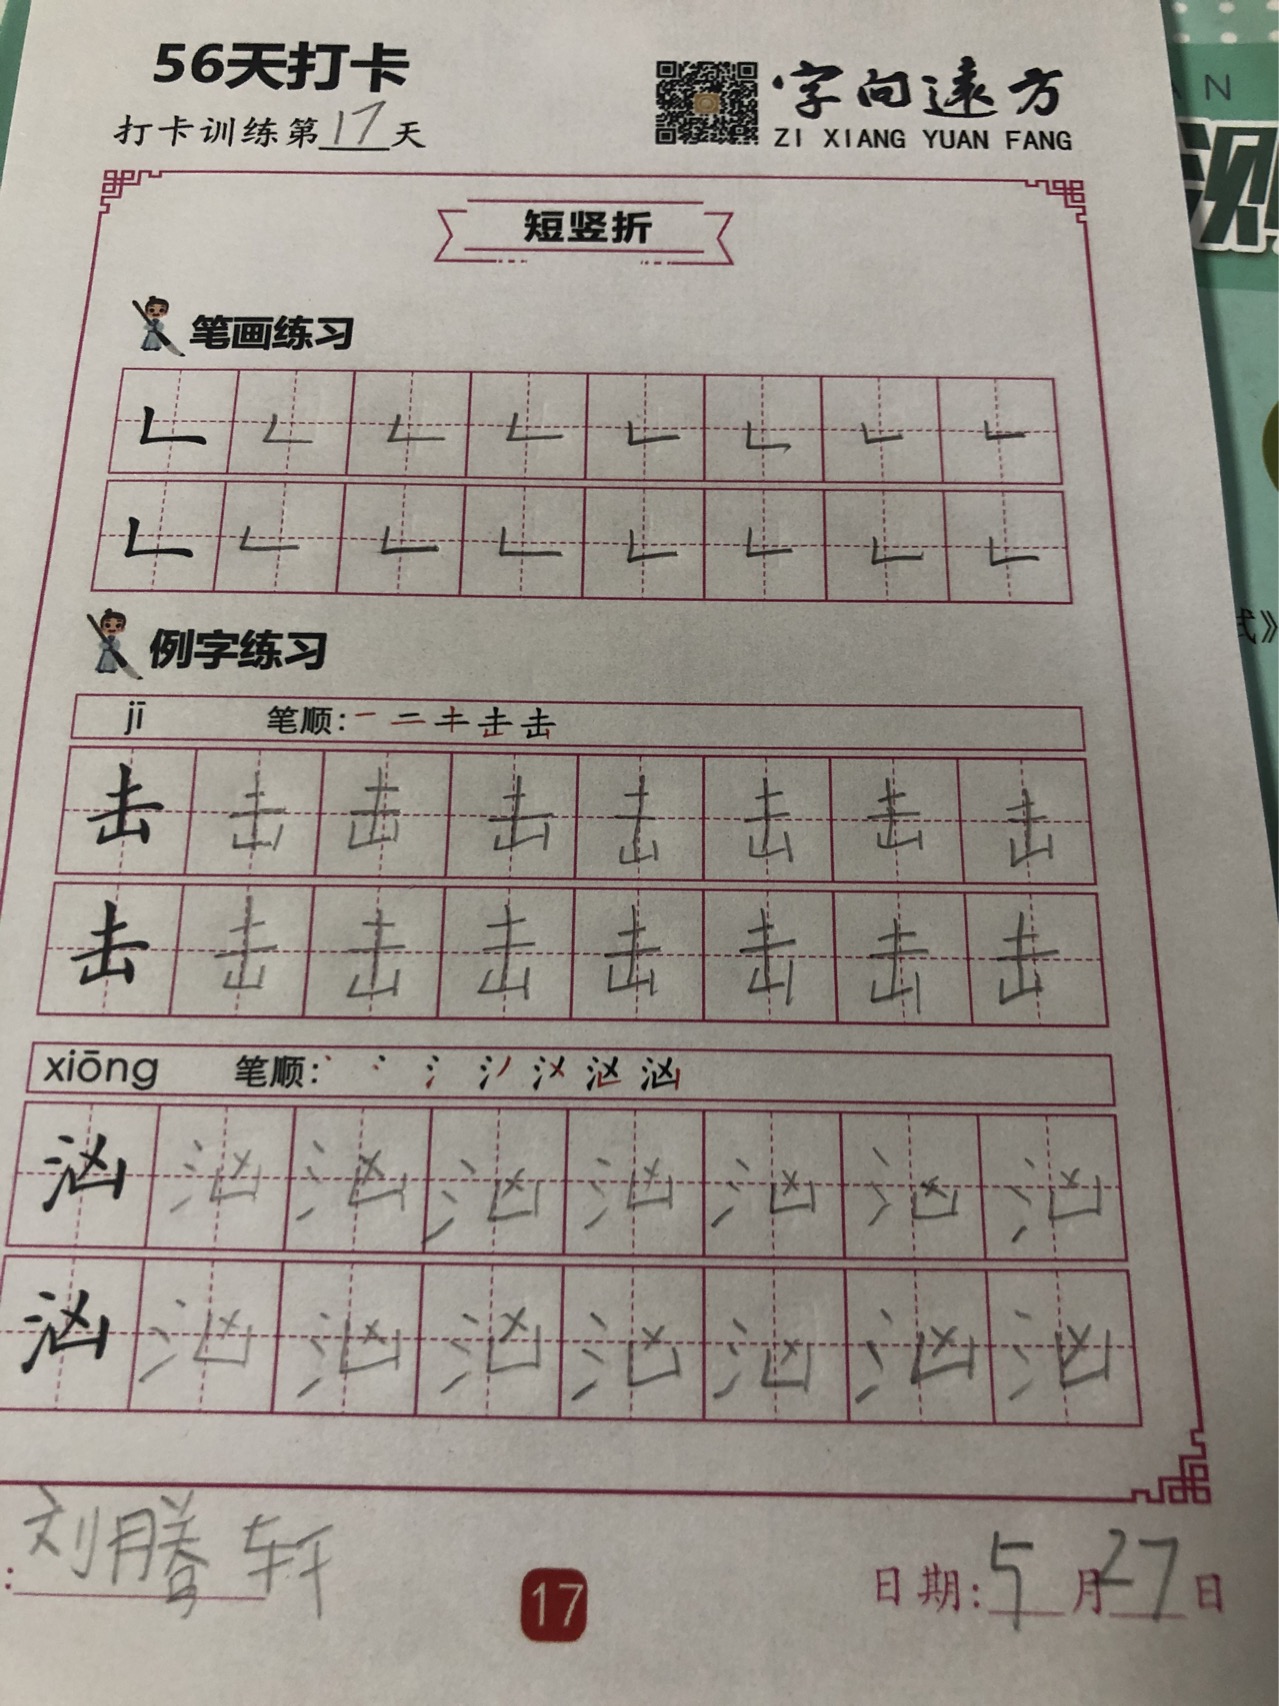 56天打卡
打卡训练第17天
字向远方
ZI XIANG YUAN FANG
AN
短竖折
笔画练习
𠃊 𠃊 𠃊 𠃊 𠃊 𠃊 𠃊 𠃊
𠃊 𠃊 𠃊 𠃊 𠃊 𠃊 𠃊 𠃊
式》
例字练习
jī 笔顺: 一 二 キ 击 击
击 击 击 击 击 击 击 击
击 击 击 击 击 击 击 击
xiōng 笔顺: 丶 冫 氵 汹 汹
汹 汹 汹 汹 汹 汹 汹 汹
汹 汹 汹 汹 汹 汹 汹 汹
:刘腾轩
17
日期:5月27日